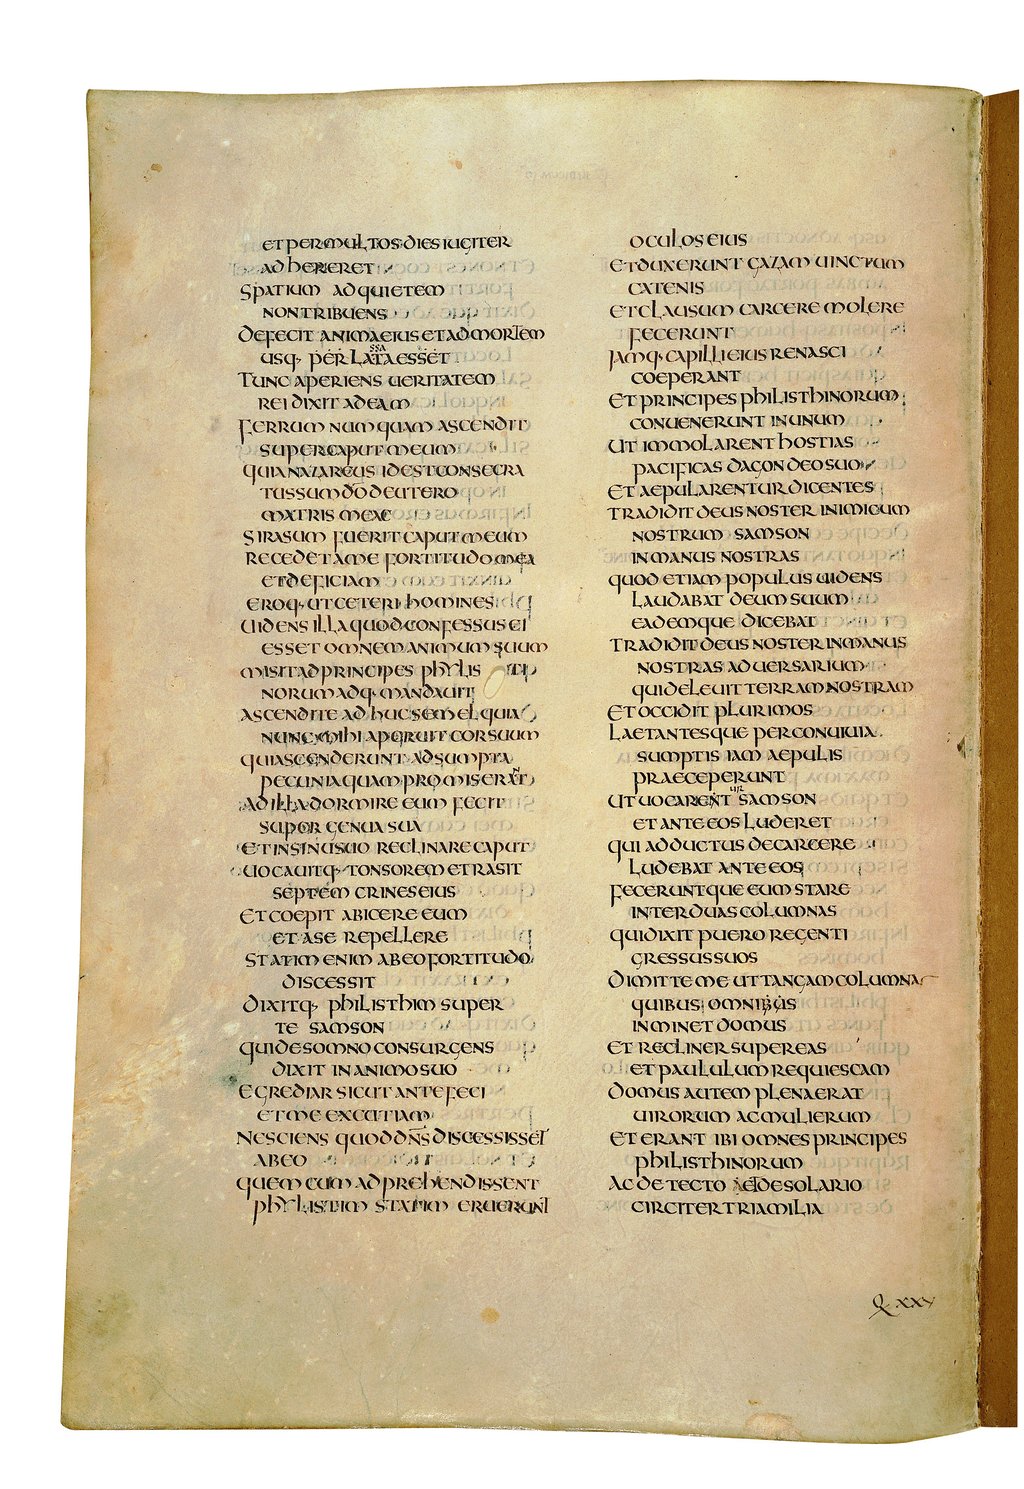 ET PER MULTOS DIES IUGITER
ADHERERET
SPATIUM AD QUIETEM
NON TRIBUENS
DEFECIT ANIMA EIUS ET AD MORTEM
USQ· PER LATA ESSET
SSA
TUNC APERIENS UERITATEM
REI DIXIT AD EAM
FERRUM NUMQUAM ASCENDIT
SUPER CAPUT MEUM
QUIA NAZAREUS ID EST CONSECRA
TUS SUM DO DE UTERO
MATRIS MEAE
SI RASUM FUERIT CAPUT MEUM
RECEDET A ME FORTITUDO MEA
ET DEFICIAM
EROQ· UT CETERI HOMINES
UIDENS ILLA QUOD CONFESSUS EI
ESSET OMNEM ANIMUM SUUM
MISIT AD PRINCIPES PHYLIS TI
NORUM ADQ· MANDAUIT
ASCENDITE AD HUC SEMEL QUIA
NUNC MIHI APERUIT COR SUUM
QUI ASCENDERUNT ADSUMPTA
PECUNIA QUAM PROMISERAT
N
AD ILLA DORMIRE EUM FECIT
SUPER GENUA SUA
ET IN SINU SUO RECLINARE CAPUT
UOCAUITQ· TONSOREM ET RASIT
SEPTEM CRINES EIUS
ET COEPIT ABICERE EUM
ET A SE REPELLERE
STATIM ENIM AB EO FORTITUDO
DISCESSIT
DIXITQ· PHILISTHIM SUPER
TE SAMSON
QUI DE SOMNO CONSURGENS
DIXIT IN ANIMO SUO
EGREDIAR SICUT ANTE FECI
ET ME EXCUTIAM
NESCIENS QUOD DNS DISCESSISSET
AB EO
QUEM CUM ADPREHENDISSENT
PHYLISTIIM STATIM ERUERUNT
OCULOS EIUS
ET DUXERUNT GAZAM UINCTUM
CATENIS
ET CLAUSUM CARCERE MOLERE
FECERUNT
IAMQ· CAPILLI EIUS RENASCI
COEPERANT
ET PRINCIPES PHILISTHINORUM
CONUENERUNT IN UNUM
UT IMMOLARENT HOSTIAS
PACIFICAS DAGON DEO SUO
ET AEPULARENTUR DICENTES
TRADIDIT DEUS NOSTER INIMICUM
NOSTRUM SAMSON
IN MANUS NOSTRAS
QUOD ETIAM POPULUS UIDENS
LAUDABAT DEUM SUUM
EADEMQUE DICEBAT
TRADIDIT DEUS NOSTER IN MANUS
NOSTRAS ADUERSARIUM
QUI DELEUIT TERRAM NOSTRAM
ET OCCIDIT PLURIMOS
LAETANTESQUE PER CONUIUIA
SUMPTIS IAM AEPULIS
PRAECEPERUNT
UT UOCARENT SAMSON
UR
ET ANTE EOS LUDERET
QUI ADDUCTUS DE CARCERE
LUDEBAT ANTE EOS
FECERUNTQUE EUM STARE
INTER DUAS COLUMNAS
QUI DIXIT PUERO REGENTI
GRESSUS SUOS
DIMITTE ME UT TANGAM COLUMNAS
QUIBUS OMNIS
INMINET DOMUS
ET RECLINER SUPER EAS
ET PAULULUM REQUIESCAM
DOMUS AUTEM PLENA ERAT
UIRORUM AC MULIERUM
ET ERANT IBI OMNES PRINCIPES
PHILISTHINORUM
AC DE TECTO DE SOLARIO
CIRCITER TRIA MILIA
Q XXV